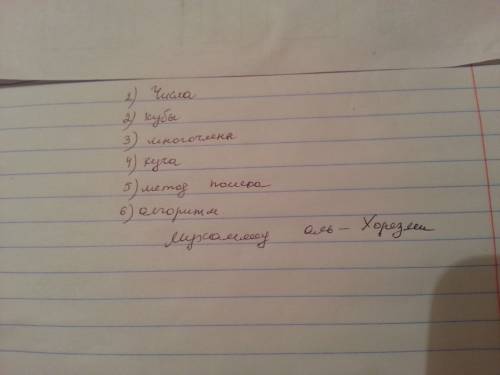 1) Числа
2) кубы
3) многочлена
4) куча
5) метод поиска
6) алгоритм
Мухаммед аль - Хорезми